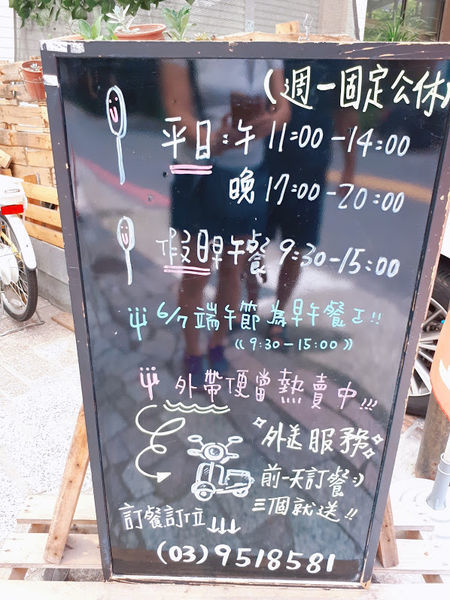 (週一固定公休)
平日:午 11:00-14:00
晚 17:00-20:00
假日早午餐 9:30-15:00
6/7端午節為早午餐!!
((9:30-15:00))
外帶便當熱賣中!!!
外送服務
前一天訂餐:)
三個就送!!
訂餐訂位↓↓↓
(03)9518581